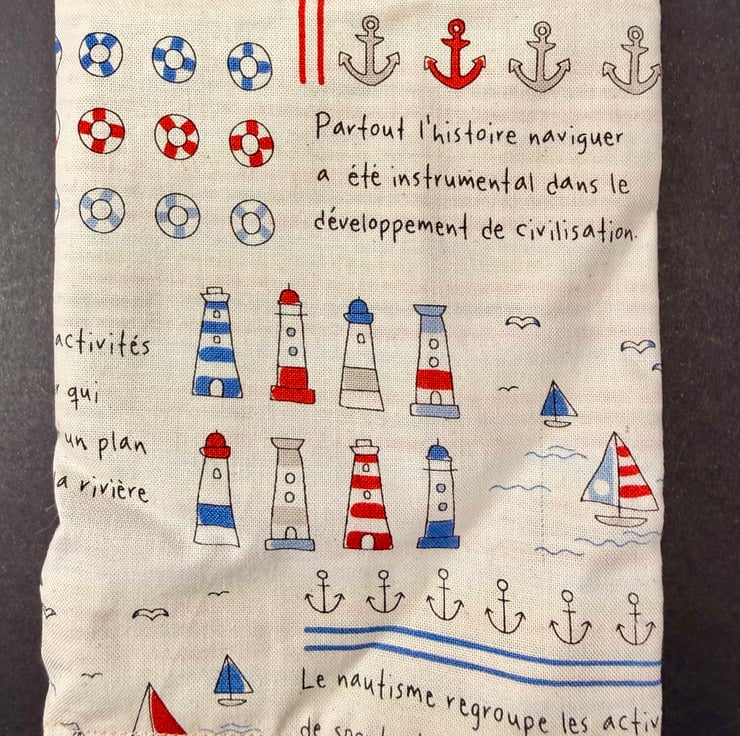 Partout l'histoire naviguer
a été instrumental dans le
développement de civilisation.
activités
qui
un plan
a rivière
Le nautisme regroupe les activ
de